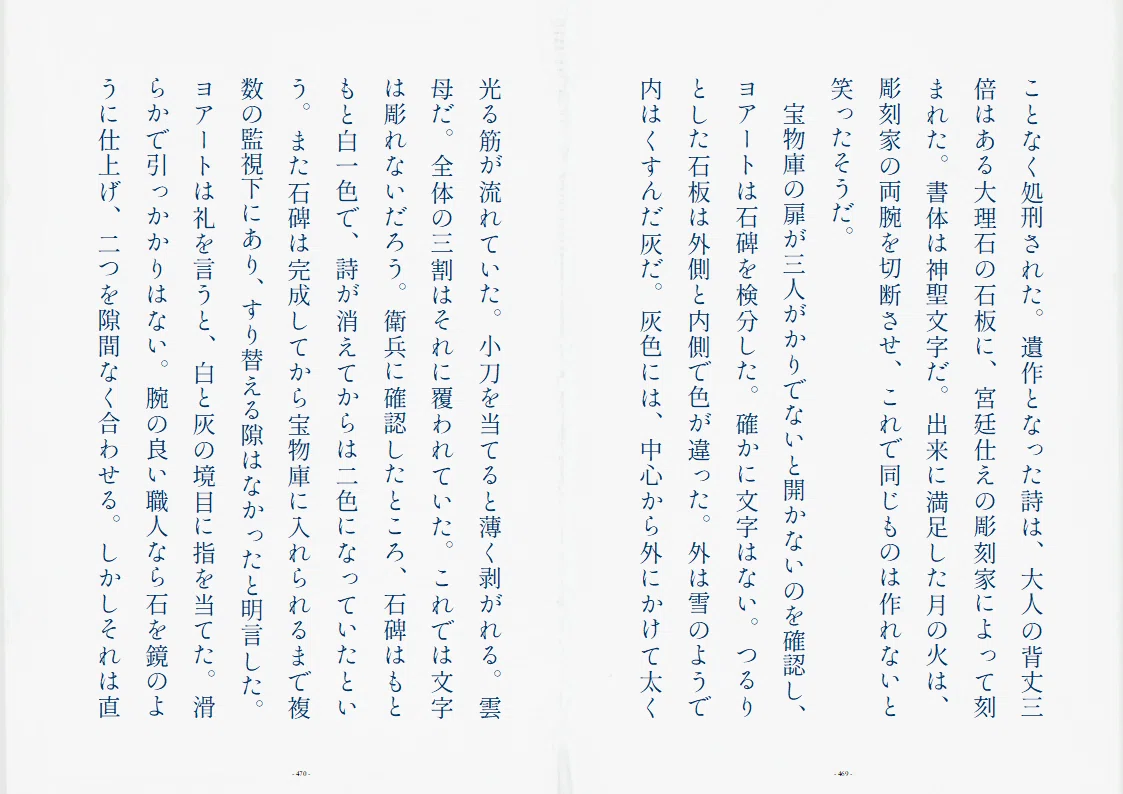 ことなく処刑された。遺作となった詩は、大人の背丈三
倍はある大理石の石板に、宮廷仕えの彫刻家によって刻
まれた。書体は神聖文字だ。出来に満足した月の火は、
彫刻家の両腕を切断させ、これで同じものは作れないと
笑ったそうだ。
宝物庫の扉が三人がかりでないと開かないのを確認し、
ヨアートは石碑を検分した。確かに文字はない。つるり
とした石板は外側と内側で色が違った。外は雪のようで
内はくすんだ灰だ。灰色には、中心から外にかけて太く
- 469 -
光る筋が流れていた。小刀を当てると薄く剥がれる。雲
母だ。全体の三割はそれに覆われていた。これでは文字
は彫れないだろう。衛兵に確認したところ、石碑はもと
もと白一色で、詩が消えてからは二色になっていたとい
う。また石碑は完成してから宝物庫に入れられるまで複
数の監視下にあり、すり替える隙はなかったと明言した。
ヨアートは礼を言うと、白と灰の境目に指を当てた。滑
らかで引っかかりはない。腕の良い職人なら石を鏡のよ
うに仕上げ、二つを隙間なく合わせる。しかしそれは直
- 470 -